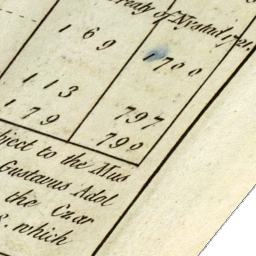 Treaty of Nystad 1721.
169 1700
113 797
179 790
bject to the Mus
Gustavus Adol
the Czar
which